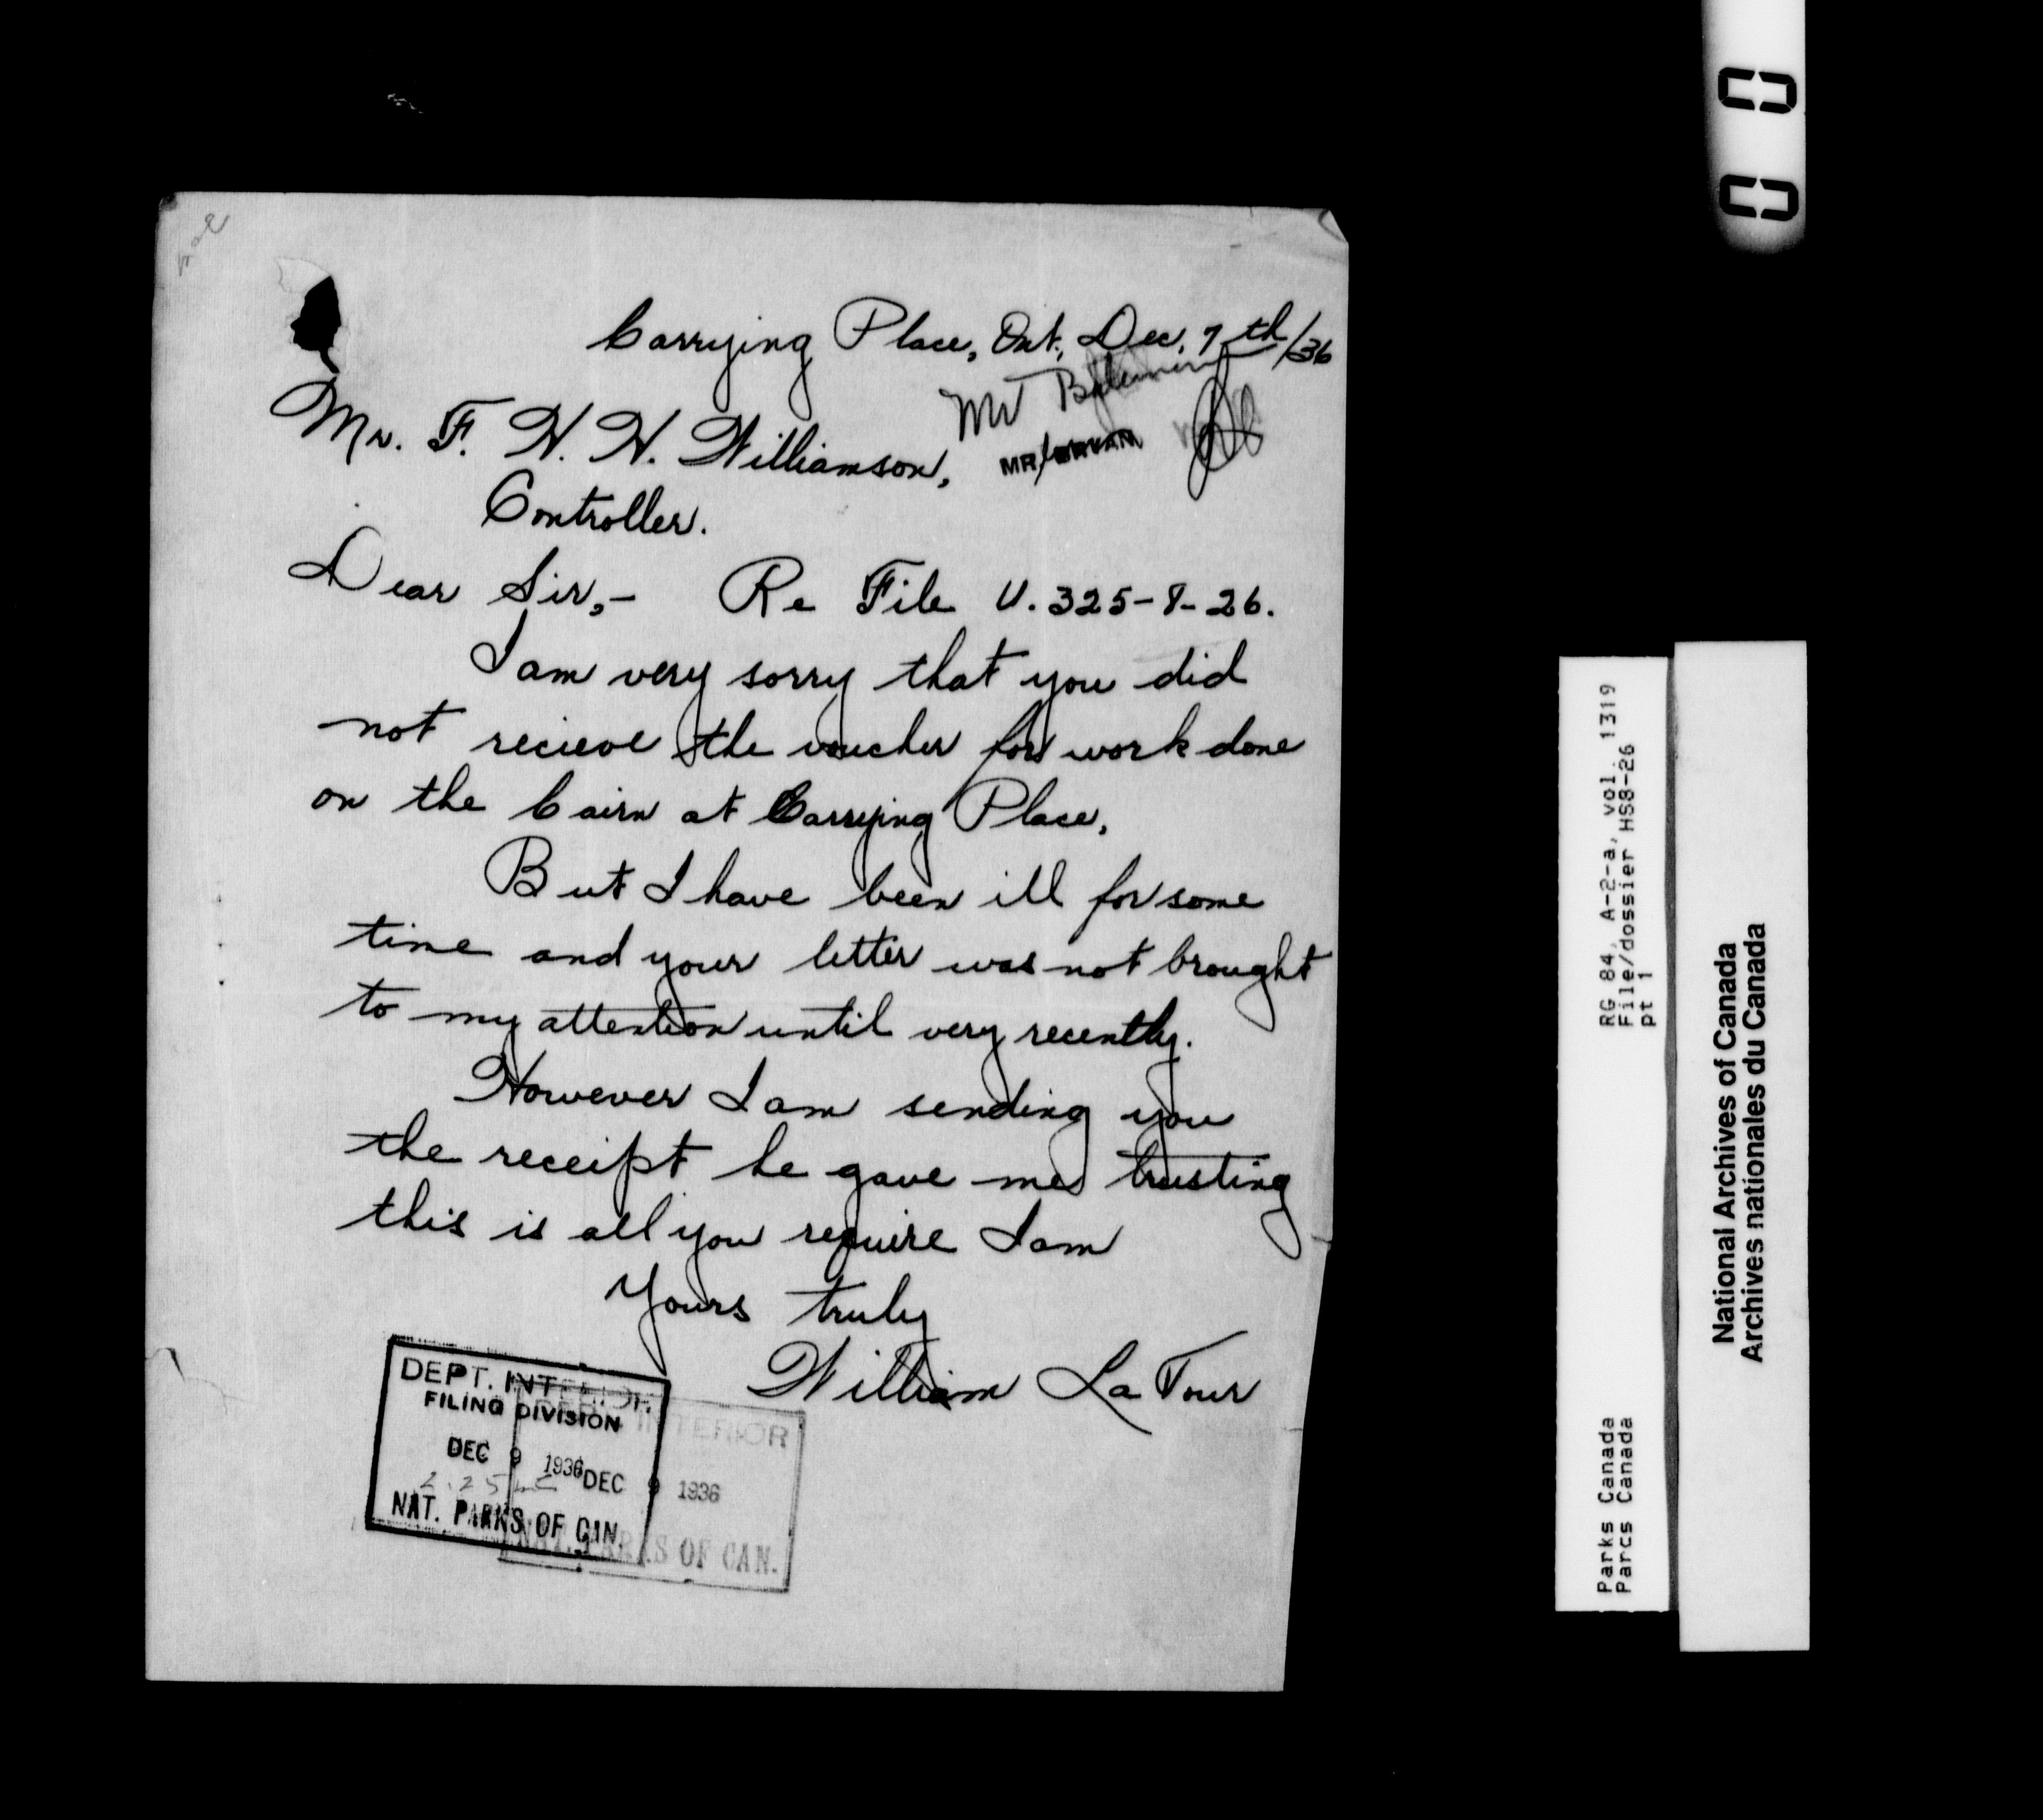 Carrying Place, Ont., Dec. 7th/36
Mr
Mr. F. H. H. Williamson,
MR
Controller.
Dear Sir,- Re File U.325-8-26.
I am very sorry that you did
not recieve the voucher for work done
on the Cairn at Carrying Place,
But I have been ill for some
time and your letter was not brought
to my attention until very recently.
However I am sending you
the receipt he gave me trusting
this is all you require I am
Yours truly
William La Tour
DEPT. INTERIOR
FILING DIVISION
DEC 9 1936
NAT. PARKS OF CAN.
DEPT. INTERIOR
DEC 9 1936
NAT. PARKS OF CAN.
RG 84, A-2-a, vol. 1319
File/dossier HS8-26
pt 1
Parks Canada
Parcs Canada
National Archives of Canada
Archives nationales du Canada